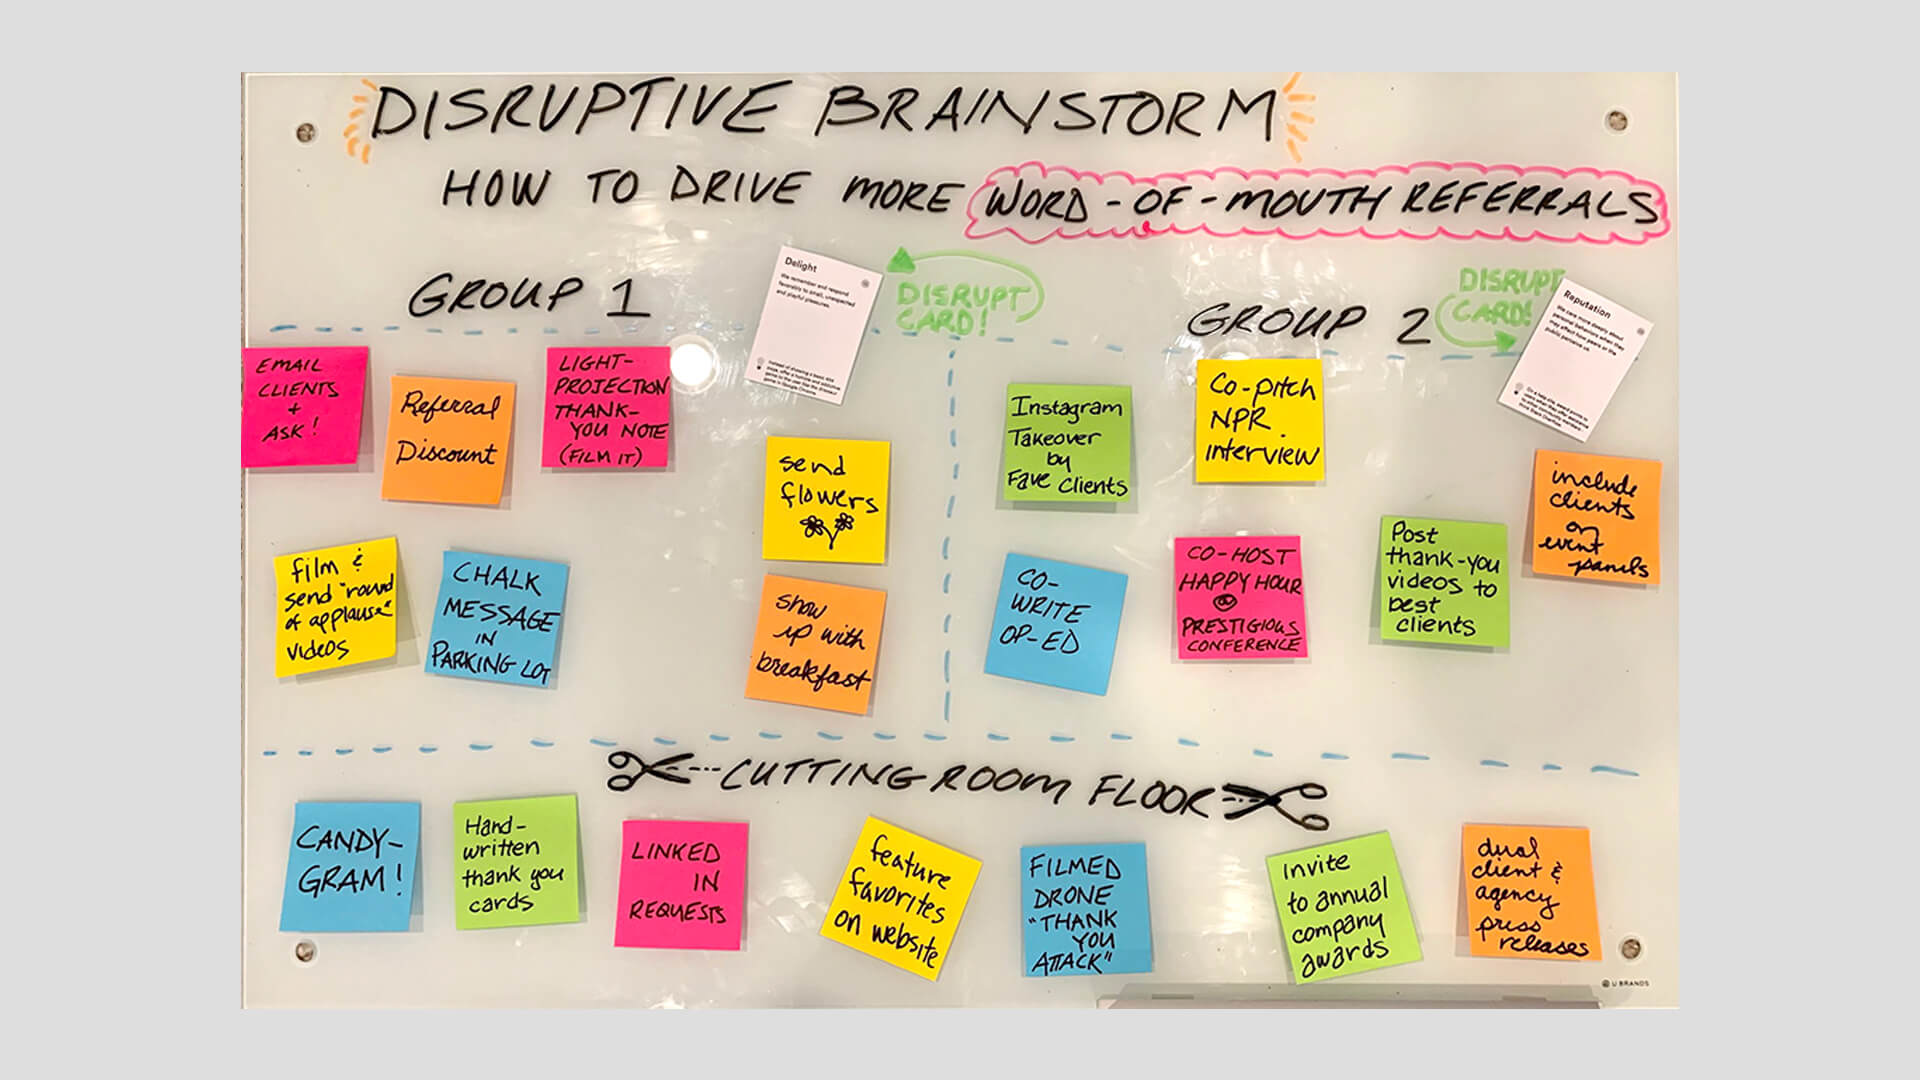 DISRUPTIVE BRAINSTORM
HOW TO DRIVE MORE WORD-OF-MOUTH REFERRALS
GROUP 1
Delight
We remember and respond
favorably to small, unexpected
and playful pleasures.
DISRUPT
CARD!
EMAIL
CLIENTS
+
ASK!
Referral
Discount
LIGHT-
PROJECTION
THANK-
YOU NOTE
(FILM IT)
send
flowers
film &
send "round
of applause"
videos
CHALK
MESSAGE
IN
PARKING LOT
show
up with
breakfast
GROUP 2
DISRUPT
CARD!
Reputation
We care more deeply about
personal behaviors when they
may affect how peers or the
public perceive us.
Instagram
Takeover
by
Fave Clients
Co-pitch
NPR
interview
include
clients
on
event
panels
CO-
WRITE
OP-ED
CO-HOST
HAPPY HOUR
@
PRESTIGIOUS
CONFERENCE
Post
thank-you
videos to
best
clients
CUTTING ROOM FLOOR
CANDY-
GRAM!
Hand-
written
thank you
cards
LINKED
IN
REQUESTS
feature
favorites
on website
FILMED
DRONE
"THANK
YOU
ATTACK"
Invite
to annual
company
awards
dual
client &
agency
press
releases
U BRANDS